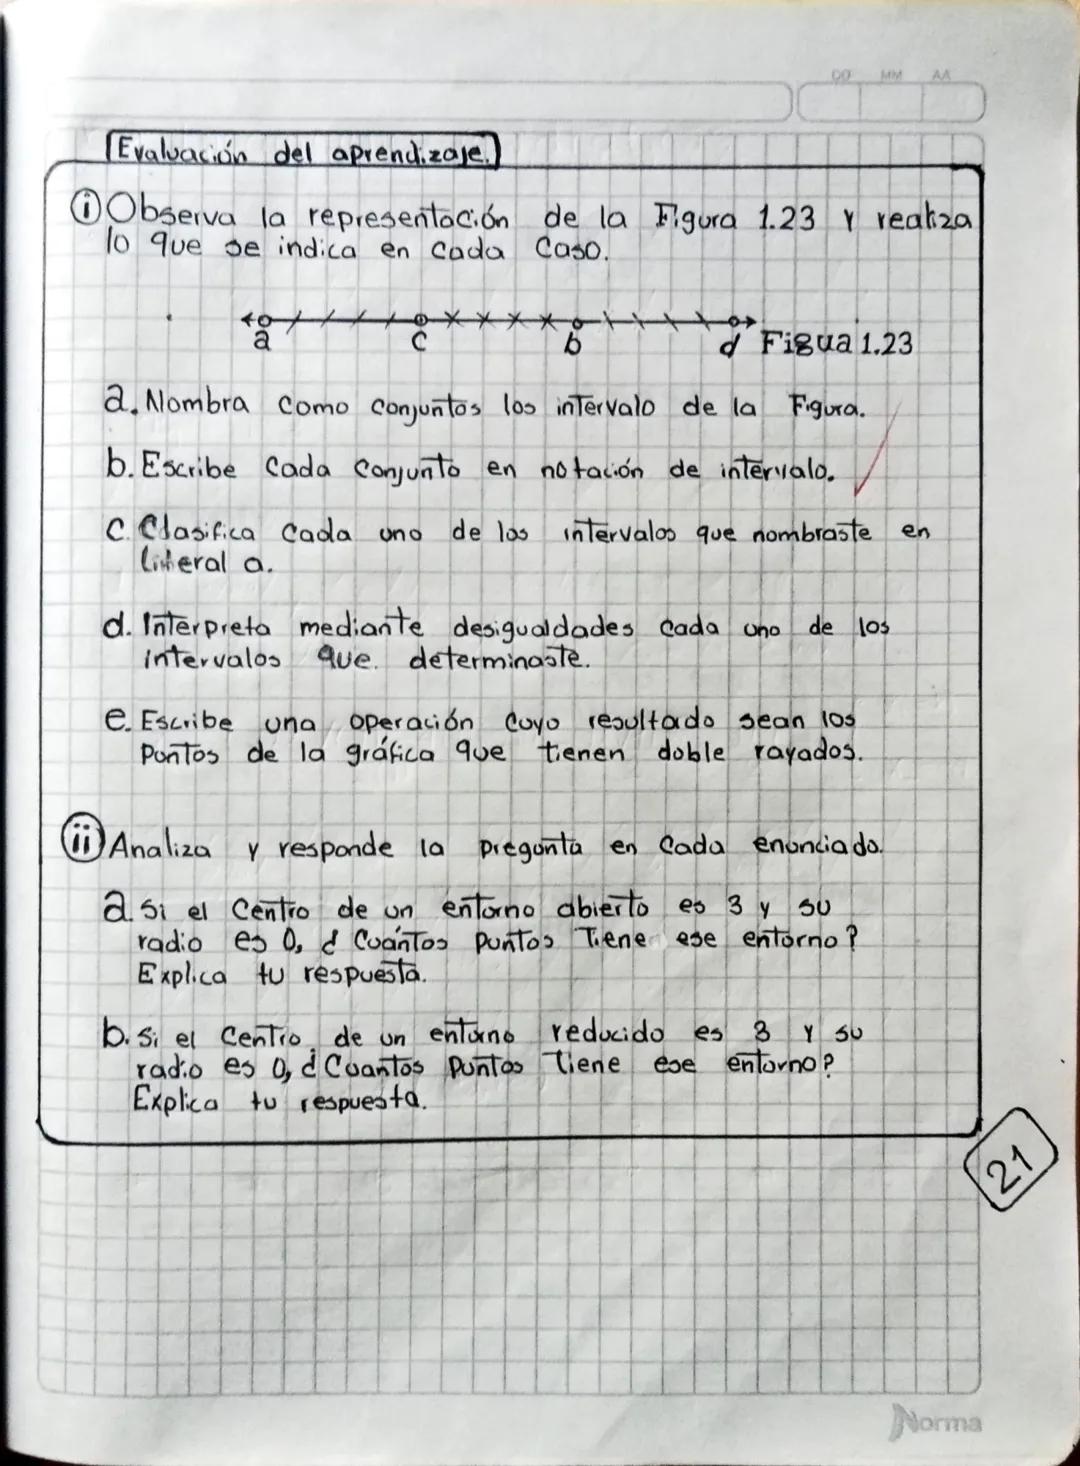 DD MM AA
Evaluación del aprendizaje.
i Observa la representación de la Figura 1.23 y realiza
lo que se indica en cada caso.
a c b d Figua 1.23
a. Nombra como conjuntos los intervalo de la Figura.
b. Escribe cada conjunto en notación de intervalo.
c. Clasifica cada uno de los intervalos que nombraste en
literal a.
d. Interpreta mediante desigualdades cada uno de los
intervalos que determinaste.
e. Escribe una operación cuyo resultado sean los
Puntos de la gráfica que tienen doble rayados.
ii Analiza y responde la pregunta en cada enunciado.
a. si el centro de un entorno abierto es 3 y su
radio es 0, ¿Cuántos puntos Tiene ese entorno?
Explica tu respuesta.
b. si el centro de un entorno reducido es 3 y su
radio es 0, ¿Cuantos puntos tiene ese entorno?
Explica tu respuesta.
21
Norma